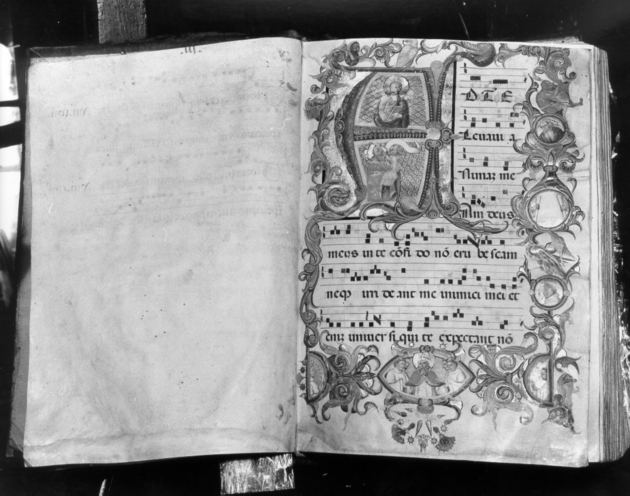 AD TE
Leuaui a
nimaz me
Am deus
meus in te cõfi do nõ eru be scam
neqz irri de ant me inimici mei et
eniz uniuer si qui te expectant nõ